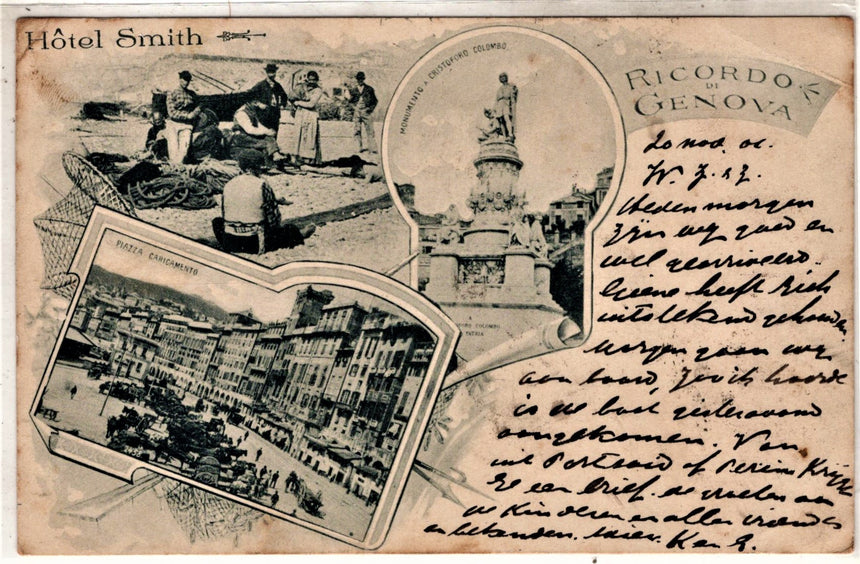 Hôtel Smith
MONUMENTO A CRISTOFORO COLOMBO
RICORDO
DI
GENOVA
PIAZZA CARICAMENTO
A
COLOMBO
PATRIA
20 nov. 01.
W. Z. & Z.
Heden morgen
zijn wij goed en
wel gearriveerd.
heeft zich
uitstekend gehouden
Morgen gaan wij
aan boord, zooals hoorde
is de boot gisteravond
aangekomen. Van
uit Portsaid of Perim Krijgt
ge een brief. de groeten aan
de Kinderen en alle vrienden
en bekenden. K en